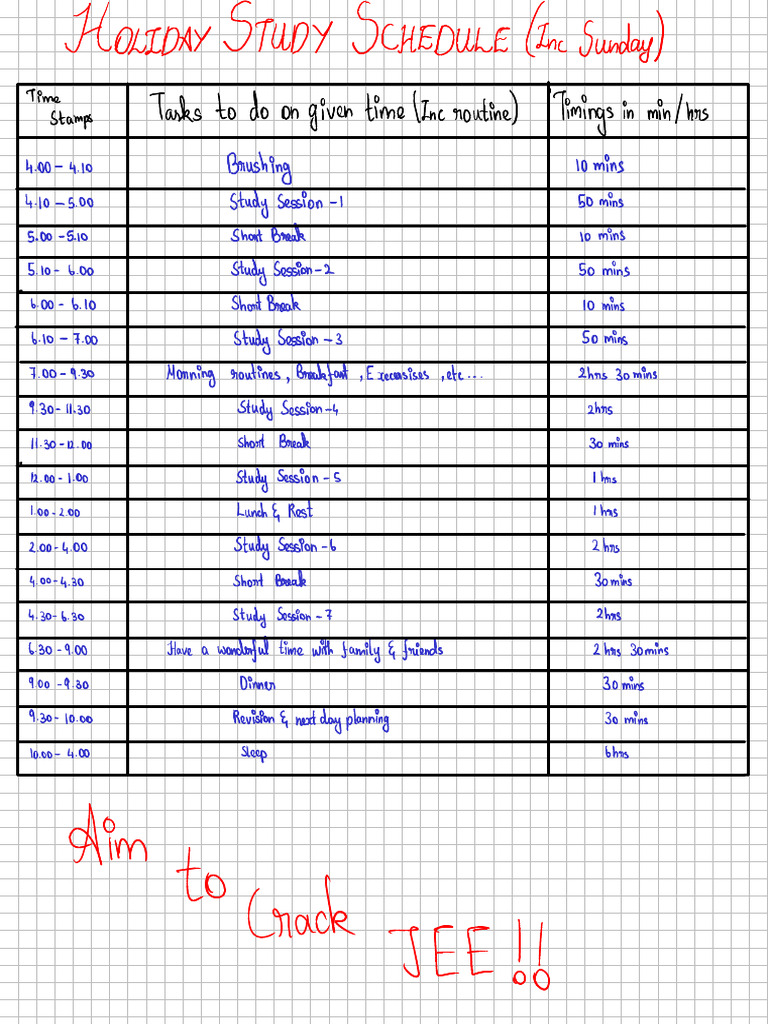 HOLIDAY STUDY SCHEDULE (Inc Sunday)
Time Stamps Tasks to do on given time (Inc routine) Timings in min/hrs
4.00 – 4.10 Brushing 10 mins
4.10 – 5.00 Study Session -1 50 mins
5.00 -5.10 Short Break 10 mins
5.10 - 6.00 Study Session-2 50 mins
6.00 - 6.10 Short Break 10 mins
6.10 – 7.00 Study Session -3 50 mins
7.00 - 9.30 Morning routines, Breakfast, Excersises, etc... 2hrs 30 mins
9.30 - 11.30 Study Session-4 2hrs
11.30 -12.00 Short Break 30 mins
12.00 - 1.00 Study Session -5 1 hrs
1.00 - 2.00 Lunch & Rest 1 hrs
2.00 - 4.00 Study Session -6 2 hrs
4.00 - 4.30 Short Break 30 mins
4.30- 6.30 Study Session -7 2hrs
6.30 - 9.00 Have a wonderful time with family & friends 2 hrs 30 mins
9.00 -9.30 Dinner 30 mins
9.30 - 10.00 Revision & next day planning 30 mins
10.00 - 4.00 Sleep 6hrs
Aim
to
Crack
JEE!!